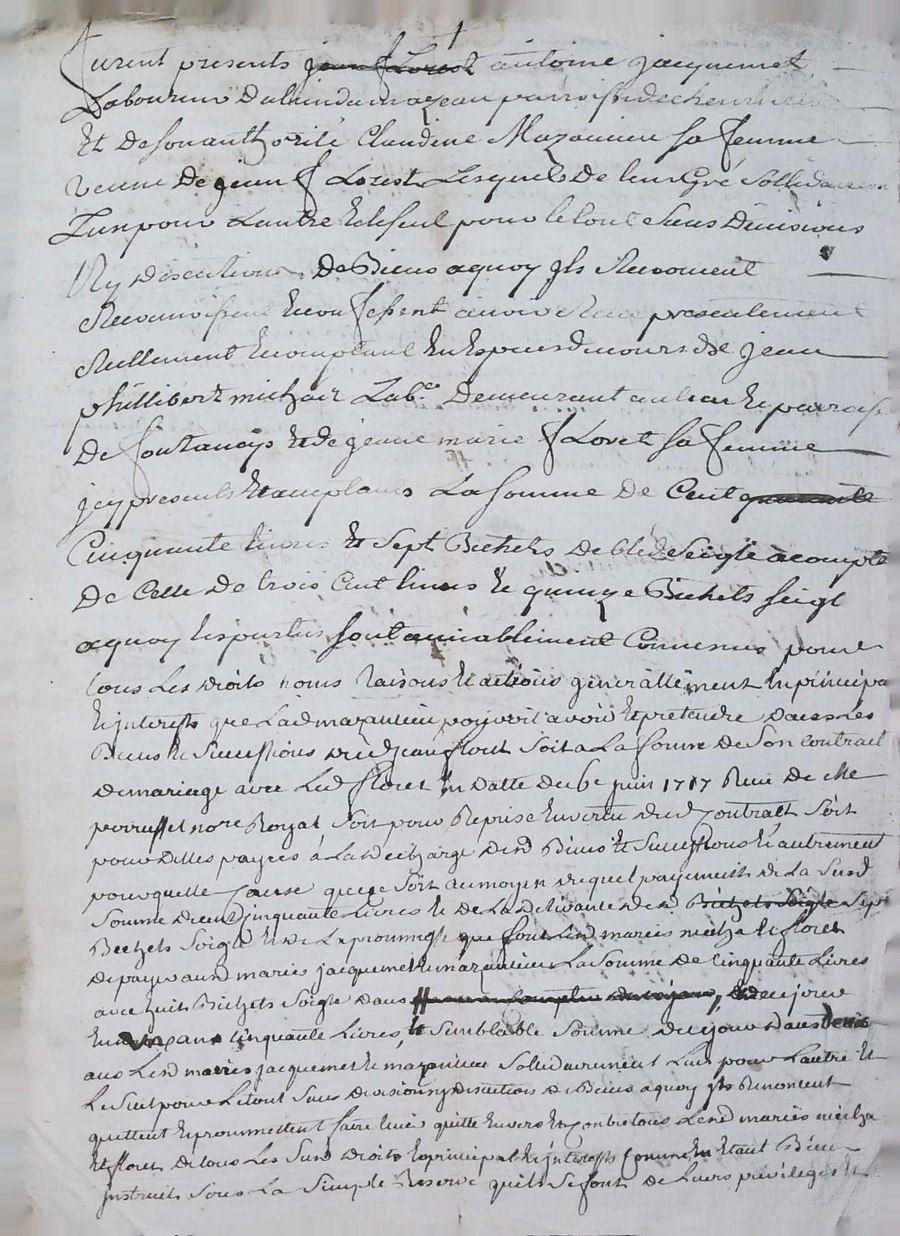 furent presents jean floret antoine jacquemet
Laboureur du paroisse de
Et de son authorité Claudine Mazanieu sa femme
veuve De jean floret Lesquels De leur gré sollidairement
L'un pour Lautre et le seul pour le tout Sans Divisions
Ny Discutions De Biens a quoy jls Renoncent
Reconnoissent et confessent avoir Receu presentement
Reellement et comptant en Especes de cours de jean
phillibert michat Lab.r Demeurant au lieu et paroisse
De fontanays et de jeanne marie floret sa femme
jcy presents et acceptants La somme De Cent quarante
Cinquante livres Et sept Bichets De bled Seigle a compte
De Celle De trois Cent livres et quinze Bichets seigl
a quoy les parties sont amiablement Convenus pour
tous Les Droits noms Raisons et actions generallement En principa
et interests que Lad mazanieu pouvoit avoir et pretendre Dans Les
Biens et Successions dud jean floret soit a La forme De Son Contract
De mariage avec Led floret en Datte du 6e juin 1717 Receu De Me
not.re Royal soit pour Reprise En vertu dud Contract soit
pour Dettes payées à La Decharge Desd Biens et successions et autrement
pour quelle Cause que ce soit au moyen duquel payement De La Susd
Somme de cent cinquante Livres et De La Desd Bichets Seigle Sept
Bichets Seigle et De La promesse que font Lesd mariés micha et floret
De payer aux mariés jacquemet et mazanieu La Somme De Cinquante Livres
avec huit Bichets Seigle Dans De ce jour
en un an cinquante Livres, et Semblable Somme De ce jour Dans Deux
ans Lesd mariés jacquemet et mazanieu Sollidairement L'un pour Lautre Et
Le Seul pour Le tout Sans Divisions ny Discutions De Biens a quoy jls Renoncent
quittent et promettent faire tenir quitte Envers Et Contre tous Lesd mariés micha
Et floret De tous Les Susd Droits En principal et jnterests Comme En Etant Bien
jnstruits Sous La Simple Reserve quils Se font De Leurs privileges et